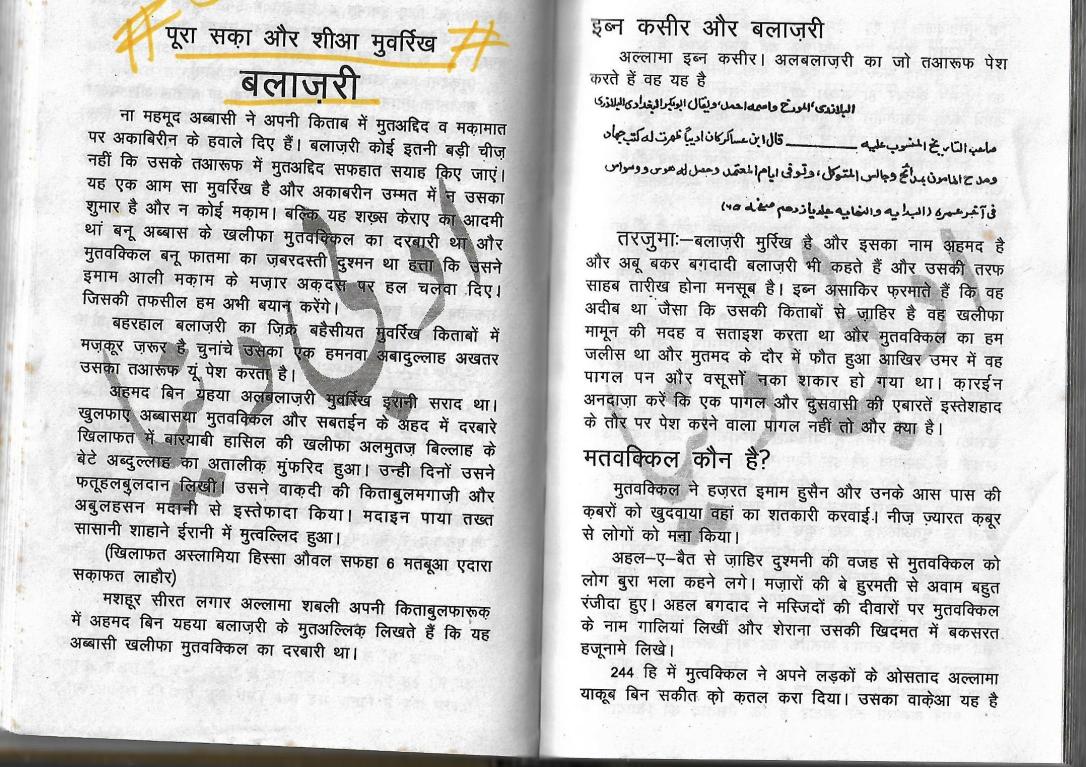 # पूरा सक़ा और शीआ मुवर्रिख #
बलाज़री
ना महमूद अब्बासी ने अपनी किताब में मुतअद्दिद व मक़ामात
पर अकाबिरीन के हवाले दिए हैं। बलाज़री कोई इतनी बड़ी चीज़
नहीं कि उसके तआरूफ में मुतअद्दिद सफहात सयाह किए जाएं।
यह एक आम सा मुवर्रिख है और अकाबरीन उम्मत में न उसका
शुमार है और न कोई मक़ाम। बल्कि यह शख़्स केराए का आदमी
थां बनू अब्बास के खलीफा मुतवक्किल का दरबारी था और
मुतवक्किल बनू फातमा का ज़बरदस्ती दुश्मन था हत्ता कि उसने
इमाम आली मक़ाम के मज़ार अक़दस पर हल चलवा दिए।
जिसकी तफसील हम अभी बयान करेंगे।
बहरहाल बलाज़री का जिक़्र बहैसीयत मुवर्रिख किताबों में
मज़कूर ज़रूर है चुनांचे उसका एक हमनवा अबादुल्लाह अखतर
उसका तआरूफ यूं पेश करता है।
अहमद बिन यहया अलबलाज़री मुवर्रिख इरानी सराद था।
खुलफाए अब्बासया मुतवक्किल और सबतईन के अहद में दरबारे
खिलाफत में बारयाबी हासिल की खलीफा अलमुतज़ बिल्लाह के
बेटे अब्दुल्लाह का अतालीक़ मुंफरिद हुआ। उन्ही दिनों उसने
फतूहलबुलदान लिखी। उसने वाक़दी की किताबुलमगाज़ी और
अबुलहसन मदानी से इस्तेफादा किया। मदाइन पाया तख्त
सासानी शाहाने ईरानी में मुत्वल्लिद हुआ।
(खिलाफत अस्लामिया हिस्सा औवल सफहा 6 मतबूआ एदारा
सक़ाफत लाहौर)
मशहूर सीरत लगार अल्लामा शबली अपनी किताबुलफारूक़
में अहमद बिन यहया बलाज़री के मुतअल्लिक़ लिखते हैं कि यह
अब्बासी खलीफा मुतवक्किल का दरबारी था।
इब्न कसीर और बलाज़री
अल्लामा इब्न कसीर। अलबलाज़री का जो तआरूफ पेश
करते हें वह यह है
البلاذری المورخ واسمہ احمد ویقال ابوبکر البغدادی البلاذری
صاحب التاریخ المنسوب علیہ ـــــ قال ابن عساکر کان ادیباً ظہرت لہ کتب جہاد
ومدح المامون بمدائح وجالس المتوکل، وتوفی ایام المعتمد وحصل لہ ھوس ووسواس
فی آخر عمرہ (البدایہ والنھایہ جلد یازدھم صفحہ ۶۵)
तरजुमाः–बलाज़री मुर्रिख है और इसका नाम अहमद है
और अबू बकर बग़दादी बलाज़री भी कहते हैं और उसकी तरफ
साहब तारीख़ होना मनसूब है। इब्न असाकिर फ़रमाते हैं कि वह
अदीब था जैसा कि उसकी किताबों से ज़ाहिर है वह खलीफा
मामून की मदह व सताइश करता था और मुतवक्किल का हम
जलीस था और मुतमद के दौर में फौत हुआ आखिर उमर में वह
पागल पन और वसूसों नका शकार हो गया था। क़ारईन
अनदाज़ा करें कि एक पागल और दुसवासी की एबारतें इस्तेशहाद
के तौर पर पेश करने वाला पागल नहीं तो और क्या है।
मतवक्किल कौन है?
मुतवक्किल ने हज़रत इमाम हुसैन और उनके आस पास की
क़बरों को खुदवाया वहां का शतकारी करवाई। नीज़ ज़्यारत क़बूर
से लोगों को मना किया।
अहल–ए–बैत से ज़ाहिर दुश्मनी की वजह से मुतवक्किल को
लोग बुरा भला कहने लगे। मज़ारों की बे हुरमती से अवाम बहुत
रंजीदा हुए। अहल बगदाद ने मस्जिदों की दीवारों पर मुतवक्किल
के नाम गालियां लिखीं और शेराना उसकी खिदमत में बकसरत
हजूनामे लिखे।
244 हि में मुत्वक्किल ने अपने लड़कों के ओसताद अल्लामा
याकूब बिन सकीत को क़तल करा दिया। उसका वाके़आ यह है